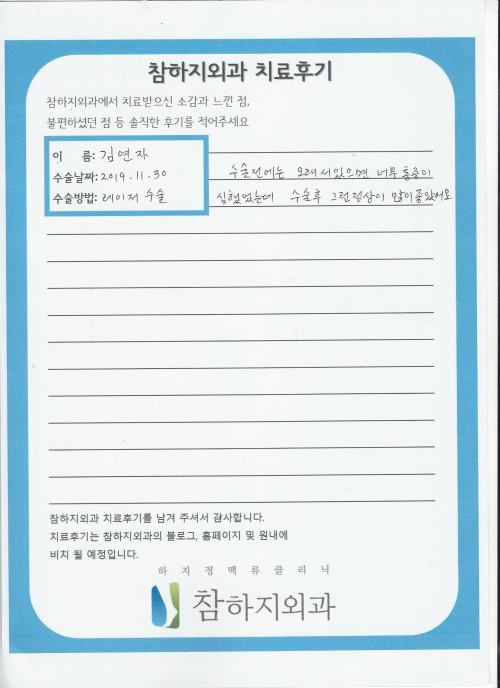 참하지외과 치료후기
참하지외과에서 치료받으신 소감과 느낀 점,
불편하셨던 점 등 솔직한 후기를 적어주세요
이 름: 김연자
수술날짜: 2019.11.30
수술방법: 레이저 수술
수술전에는 오래 서있으면 너무 통증이
심했었는데 수술후 그런점상이 많이좋았어요
참하지외과 치료후기를 남겨 주셔서 감사합니다.
치료후기는 참하지외과의 블로그, 홈페이지 및 원내에
비치 될 예정입니다.
하지정맥류클리닉
참하지외과